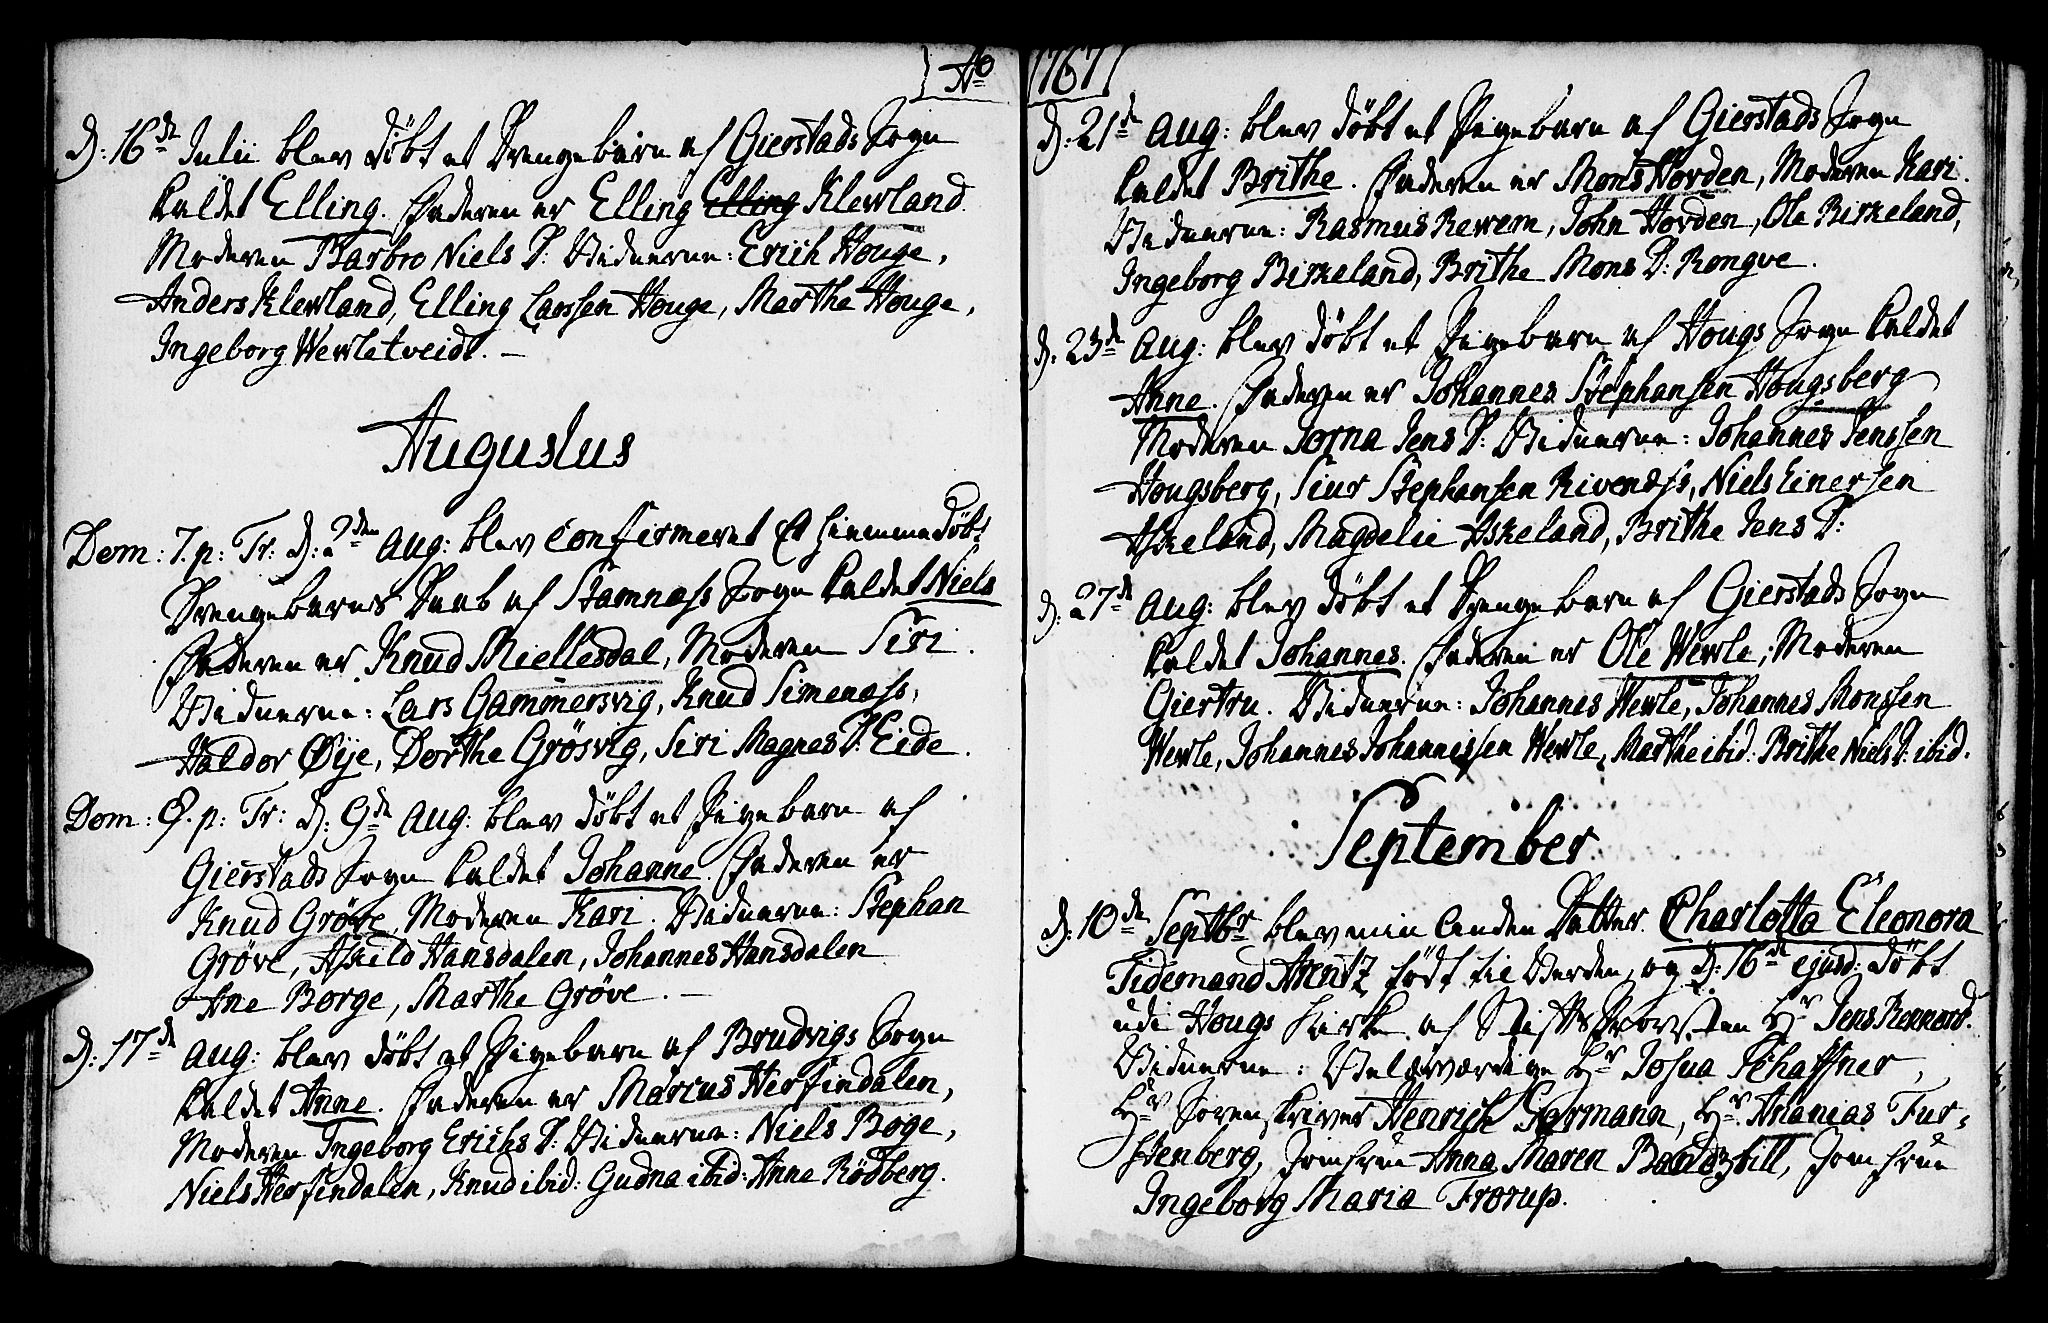 Ao
d: 16de Julii blev døbt et Drengebarn af Gierstads Sogn
kaldet Elling. Faderen er Elling Elling Klewland.
Moderen Barbro Niels D: Vidnerne: Erich Houge,
Anders Klewland, Elling Larssen Houge, Marthe Houge,
Ingeborg Wewletveidt. —
Augustus
Dom: 7. p: Tr: d: 2den Aug: blev confirmeret Et hiemmedøbt
Drengebarns Daab af Stamnæss Sogn kaldet Niels
Faderen er Knud Miellesdal, Moderen Siri.
Vidnerne: Lars Gammersvig, Knud Simenæss,
Haldor Øÿe, Dorthe Grøsvig, Siri Magnes D: Eide.
Dom: 8. p: Tr: d: 9de Aug: blev døbt et Pigebarn af
Gierstads Sogn kaldet Johanne. Faderen er
Knud Grøve, Moderen Kari. Vidnerne: Stephan
Grøve, Askild Hansdalen, Johannes Hansdalen
Ane Borge, Marthe Grøve. —
d: 17de Aug: blev døbt et Pigebarn af Brudvigs Sogn
kaldet Anne. Faderen er Marcus Herfindalen,
Moderen Ingeborg Erichs D: Vidnerne: Niels Boge,
Niels Herfindalen, Knud ibid: Gudna ibid: Anne Rødberg.
1767
d: 21de Aug: blev døbt et Pigebarn af Gierstads Sogn
kaldet Brithe. Faderen er Mons Horden, Moderen Kari.
Vidnerne: Rasmus Rewem, John Horden, Ole Birkeland,
Ingeborg Birkeland, Brithe Mons D: Rongve.
d: 23de Aug: blev døbt et Pigebarn af Hougs Sogn kaldet
Anne. Faderen er Johannes Stephansen Hougsberg
Moderen Jorna Jens D: Vidnerne: Johannes Jenssen
Hougsberg, Siur Stephansen Rivenæss, Niels Einersen
Askeland, Magdelie Askeland, Brithe Jens D:
d: 27de Aug: blev døbt et Drengebarn af Gierstads Sogn
kaldet Johannes. Faderen er Ole Wewle, Moderen
Giertru. Vidnerne: Johannes Wewle, Johannes Monssen
Wewle, Johannes Johannessen Wewle, Marthe ibid: Brithe Niels D: ibid.
September
d: 10de Septbr blev min Anden Datter Charlotta Eleonora
Tidemand Arentz født til Verden, og d: 16de ejusd: døbt
udi Hougs Kirke af Stifts Provsten Hr Jens Rennord.
Vidnerne: Velærværdige Hr Josua Schaffner,
Hr Sorenskriver Henrich Garmann, Hr Ananias Fur-
stenberg, Jomfrue Anna Maren Jomfrue
Ingeborg Maria Trorup.